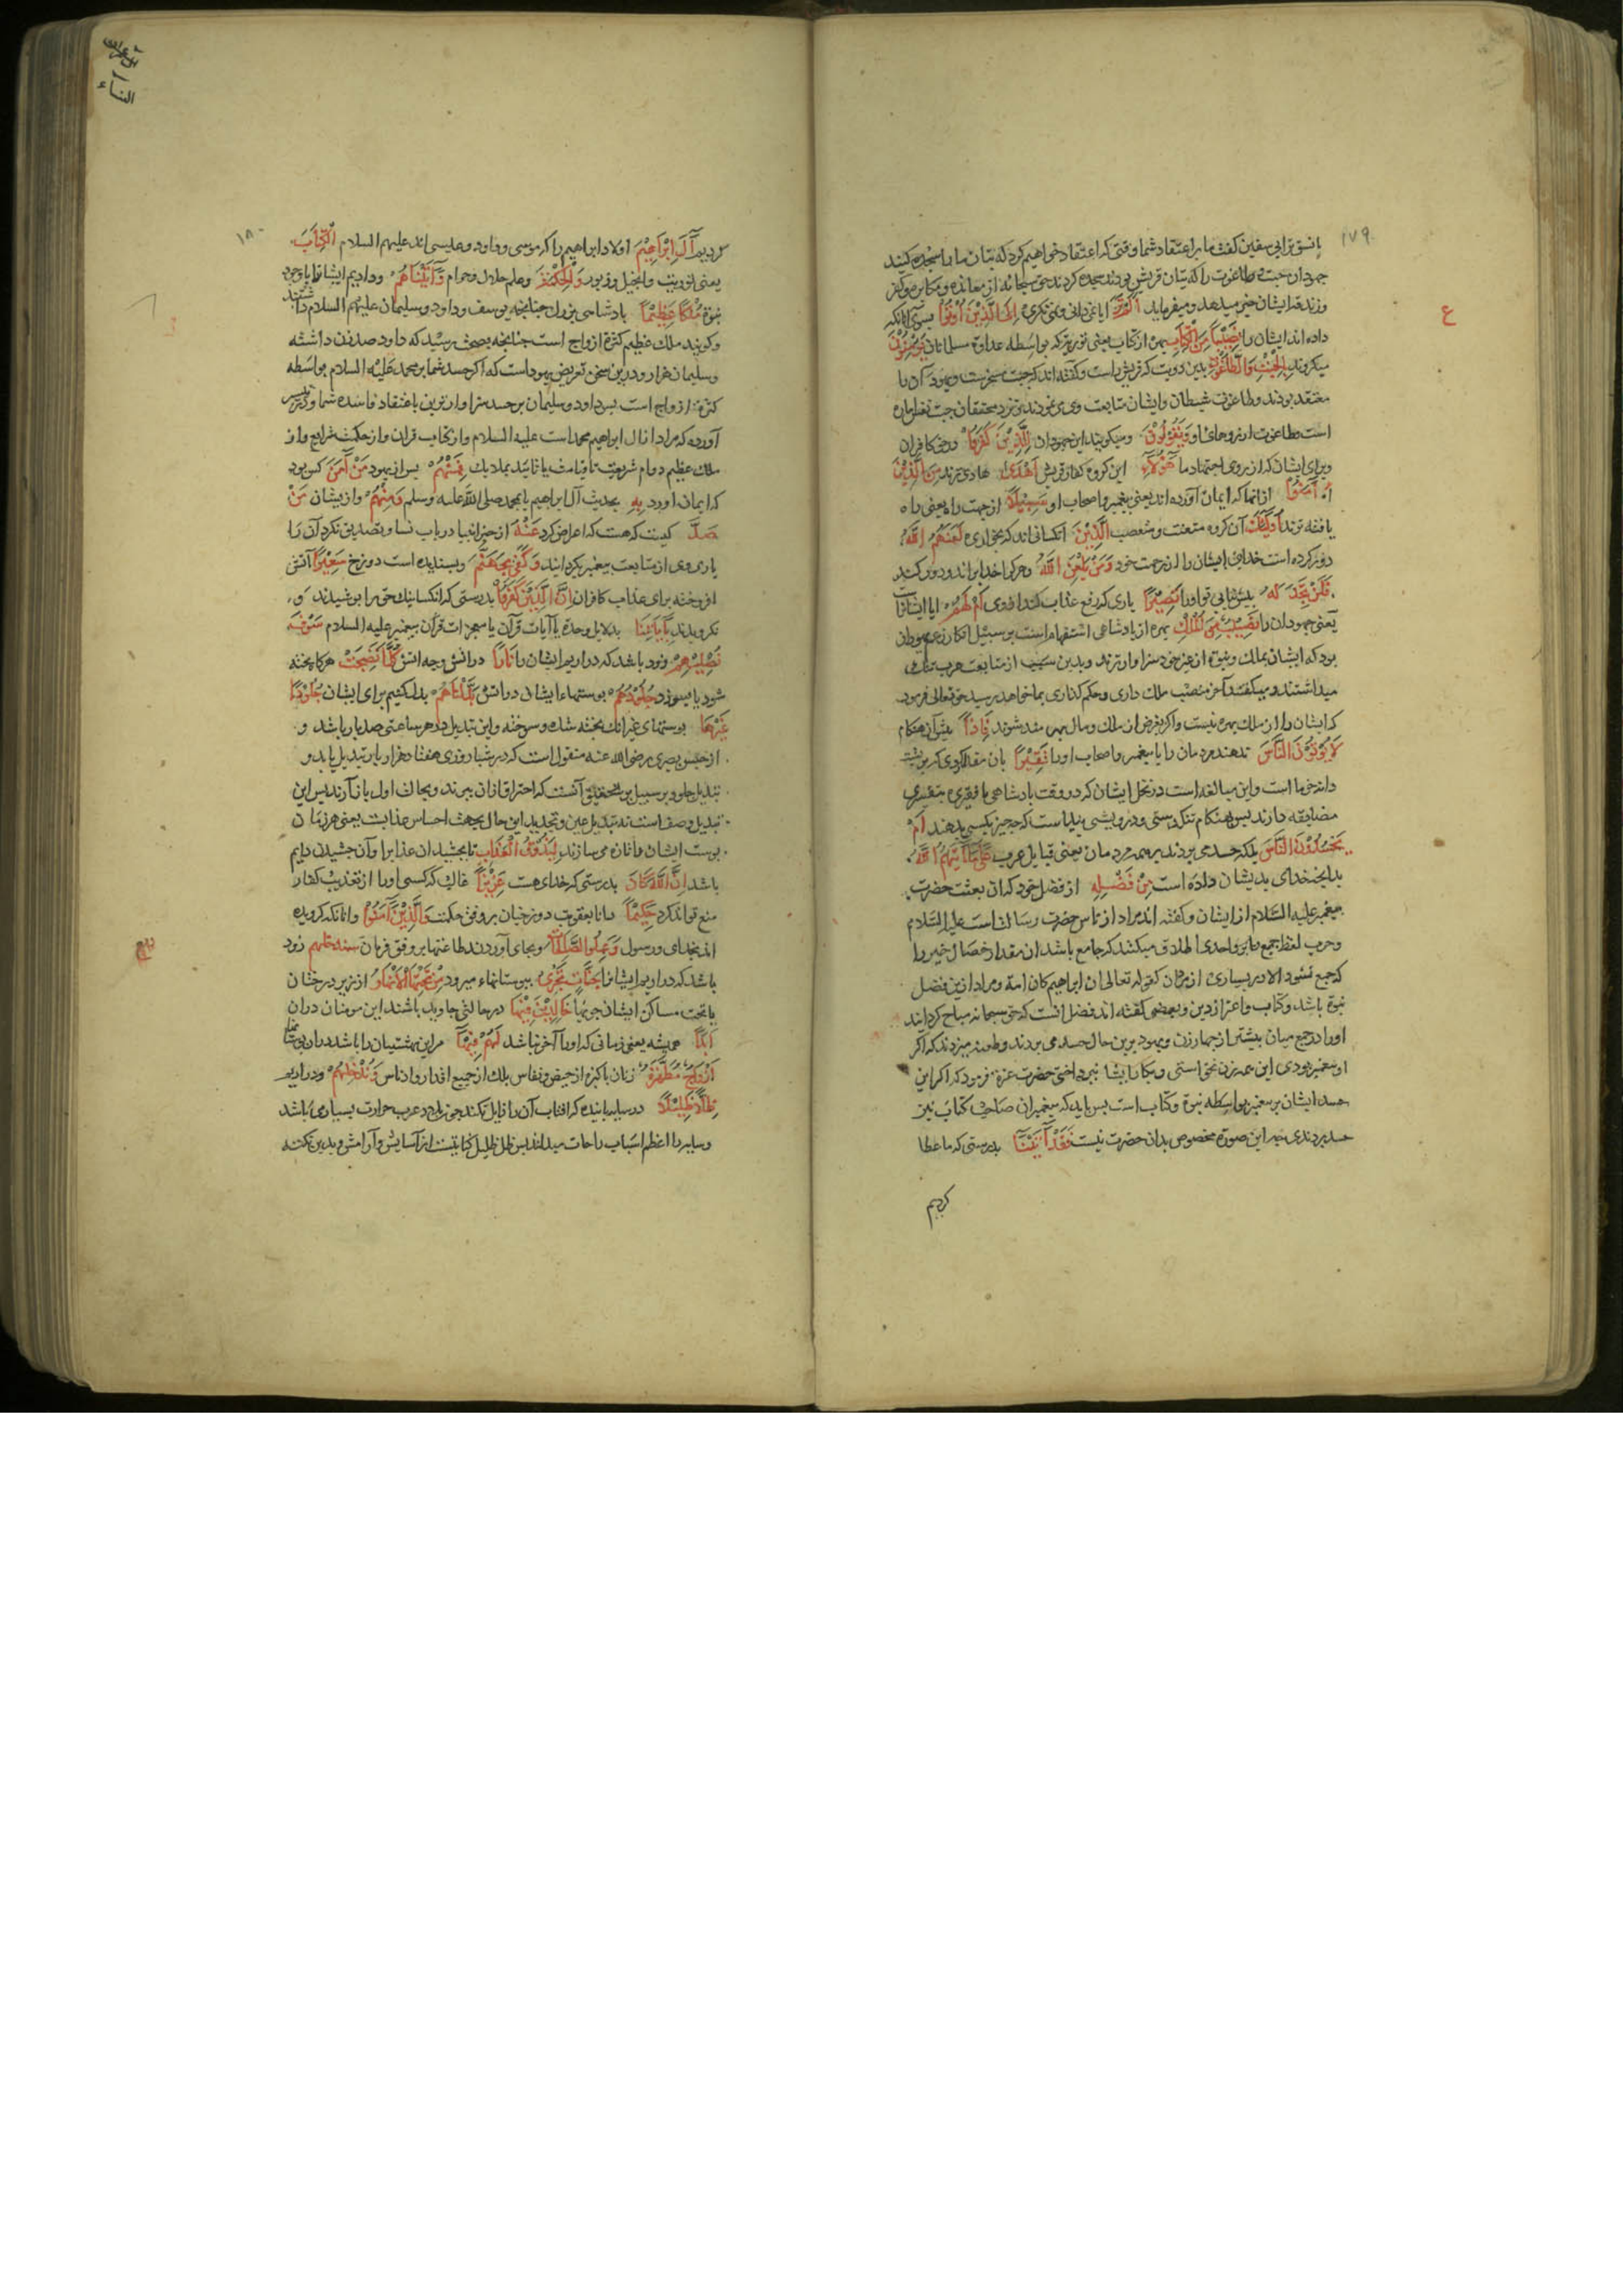 ۱۷۹
بانسق تر ابی سفین گفت ما بر اعتقاد شما وقتی که اعتقاد خواهیم کرد که بتان ما را سجده کنید
جهودان جبت و طاغوت را که بتان قریش بودند سجده کردند حق سبحانه از معانده و مکابره و کفر
ع
وزندقه ایشان خبر میدهد و میفرماید أَلَمْ تَرَ آیا نمی دانی و نمی نکری إِلَى الَّذِيْنَ أُوتُوْا بسوی آنانکه
داده اند ایشان را نَصِيْباً مِنَ الْكِتَابِ بهره از کتاب یعنی توریة که بواسطه عداوة مسلمانان يُؤْمِنُوْنَ
میکروند بِالْجِبْتِ وَالطَّاغُوْتِ بدین دو بت که قریش راست و گفته اند که جبت سحرست و یهود آن را
معتقد بودند و طاغوت شیطان و ایشان متابعت وی می نمودند و نزد محققان جبت نفس اماره
است و طاغوت ارزوهای او وَيَقُولُوْنَ ومیکویند این جهودان لِلَّذِيْنَ كَفَرُوا در حق کافران
وبرای ایشان که از روی اجتهاد ما هَؤُلَاءِ این کروه کفار قریش أَهْدَى هادی ترند مِنَ الَّذِيْنَ
آمَنُوْا از آنها که ایمان آورده اند یعنی پیغمبر و اصحاب او سَبِيْلاً از جهت راه یعنی راه
یافته ترند أُولَئِكَ آن کروه متعنت و متعصب الَّذِيْنَ آنکسانی اند که بخواری لَعَنَهُمُ اللَّهُ
دور کرده است خدای ایشان را از رحمت خود وَمَنْ يَلْعَنِ اللَّهُ وهر کرا خدا براند و دور کند
فَلَنْ تَجِدَ لَهُ پس نیابی تو او را نَصِيْراً یاری که رفع عذاب کند از وی أَمْ لَهُمْ آیا ایشانراست
یعنی جهودان را نَصِيْبٌ مِنَ الْمُلْكِ بهره از پادشاهی استفهام است بر سبیل انکار زعم یهودان
بود که ایشان بملک و نبوة از غیر خود سزاوار ترند و بدین سبب از متابعت عرب ننک می
میداشتند و میکفتند آخر منصب ملک داری و حکم کذاری بما خواهد رسید حق تعالی فرمود
که ایشان را از ملک بهره نیست و اکر بفرض از ملک و مال بهره مند شوند فَإِذاً پس آن هنکام
لَا يُؤْتُوْنَ النَّاسَ ندهند مردمان را یا پیغمبر و اصحاب او را نَقِيْراً بآن مقدار کوی که بر پشت
دانه خرما است و این مبالغه است در بخل ایشان که در وقت پادشاهی با فقیری بنقیری
مضایقه دارند پس هنکام تنکدستی و درویشی پیداست که چه چیز بکسی بدهند أَمْ
يَحْسُدُوْنَ النَّاسَ بلکه حسد می بردند بر همه مردمان یعنی قبایل عرب عَلَى مَا آتَيهُمُ اللَّهُ
بدانچه خدای بدیشان داده است مِنْ فَضْلِهِ از فضل خود که آن بعثت حضرت
پیغمبر علیه السلام از ایشان و گفته اند مراد از ناس حضرت رسالت است علیه السلام
وعرب لفظ جمع را بر واحدی اطلاق میکنند که جامع باشد آن مقدار خصال خیر را
که جمع نشود الا در بسیاری از مردمان کقوله تعالی ان ابراهیم کان امة و مراد ازین فضل
نبوة باشد و کتاب و اعزاز دین و بعضی گفته اند فضل آنست که حق سبحانه مباح کردانید
او را در جمع میان بیشتر از چهار زن و یهود برین حال حسد می بردند و طعنه میزدند که اکر
او پیغمبر بودی این همه زن نخواستی و بکار ایشان نپرداختی حضرت عزة فرمود که اکر این
حسد ایشان بر پیغمبر بواسطه نبوة و کتاب است پس باید که پیغمبران صاحب کتاب نیز
حسد بردندی چه این صورة مخصوص بدان حضرت نیست فَقَدْ آتَيْنَا بدرستی که ما عطا
کردیم
آل عمران
النساء
۱۸۰
کردیم آلَ إِبْرَاهِيْمَ اولاد ابراهیم را که موسی و داود و عیسی اند علیهم السلام الْكِتَابَ
یعنی توریت و انجیل و زبور وَالْحِكْمَةَ و علم حلال و حرام وَآتَيْنَاهُمْ و دادیم ایشانرا با وجود
نبوة مُلْكاً عَظِيْماً پادشاهی بزرک چنانچه یوسف و داود و سلیمان علیهم السلام داشتند
وکویند ملک عظیم کثرة ازواج است چنانچه بصحت رسید که داود صد زن داشته
وسلیمان هزار و درین سخن تعریض یهود است که اکر حسد شما بر محمد علیه السلام بواسطه
کثرة ازواج است پس داود و سلیمان بر حسد سزاوار ترین باعتقاد فاسده شما و در تفسیر
آورده که مراد از آل ابراهیم محمد است علیه السلام و از کتاب قران و از حکمت شرایع و از
ملک عظیم دوام شریعت تا قیامت یا تأیید بملایک فَمِنْهُمْ پس از یهود مَنْ آمَنَ کس بود
که ایمان آورد بِهِ بحدیث آل ابراهیم یا بمحمد صلی الله علیه وسلم وَمِنْهُمْ و از یشان مَنْ
صَدَّ کسیت که هست که اعراض کرد عَنْهُ از خبر انبیا در باب نسا و تصدیق نکرد آن را
یا روی از متابعت پیغمبر بکردانید وَكَفَى بِجَهَنَّمَ و بسندیده است دوزخ سَعِيْراً آتش
افروخته برای عذاب کافران إِنَّ الَّذِيْنَ كَفَرُوْا بدرستی که آنکسانیک حق را بپوشیدند و
نکرویدند بِآيَاتِنَا بدلایل وحدة یا آیات قرآن یا معجزات قرآن پیغمبر علیه السلام سَوْفَ
نُصْلِيْهِمْ زود باشد که در اریم ایشان را نَاراً در آتش و چه اتش كُلَّمَا نَضِجَتْ هرکاه پخته
شود یا بسوزد جُلُوْدُهُمْ پوستهاء ایشان در اتش بَدَّلْنَاهُمْ بدل کنیم برای ایشان جُلُوْداً
غَيْرَهَا پوستهای غیر آنک پخته شده و سوخته و این تبدیل در هر ساعتی صد بار باشد و
از حسن بصری رضی الله عنه منقول است که در شبانروزی هفتاد هزار بار تبدیل یابد و
تبدیل جلود بر سبیل تحقیق آنست که احتراق از آن ببرند و بحالت اول باز آرند پس این
تبدیل وصف است نه تبدیل عین و تجدید این حال بجهت احساس عذابست یعنی هر زمان
پوست ایشان را تازه می سازند لِيَذُوْقُوا الْعَذَابَ تا بچشند آن عذاب را و آن چشیدن دایم
باشد إِنَّ اللَّهَ كَانَ بدرستی که خدای هست عَزِيْزاً غالب که کسی او را از تعذیب کفار
منع نتواند کرد حَكِيْماً دانا بعقوبت دوزخیان بر وفق حکمت وَالَّذِيْنَ آمَنُوْا و آنانکه کرویده
اند بخدای و رسول وَعَمِلُوا الصَّالِحَاتِ و بجای آوردند طاعتها بر وفق فرمان سندخلهم زود
باشد که در اریم ایشانرا جَنَّاتٍ تَجْرِيْ ببوستانهاء میرود مِنْ تَحْتِهَا الْأَنْهَارُ از زیر درختان
یا تحت مساکن ایشان جویها خَالِدِيْنَ فِيْهَا در حالتی جاوید باشند این مومنان در ان
أَبَداً همیشه یعنی زمانی که او را آخر نباشد لَهُمْ فِيْهَا مر این بهشتیان را باشد در ان بوستانها
أَزْوَاجٌ مُطَهَّرَةٌ زنان پاکیزه از حیض و نفاس بلک از جمیع اقذار و ادناس وَنُدْخِلُهُمْ و در اریم
ظِلاًّ ظَلِيْلاً در سایه پاینده که افتاب آن را زایل نکند چون در بلاد عرب حرارت بسیاری باشد
وسایه را اعظم اسباب راحات میدانند پس ظل ظلیل کنایتست از آسایش و آرامش و بدین نکته